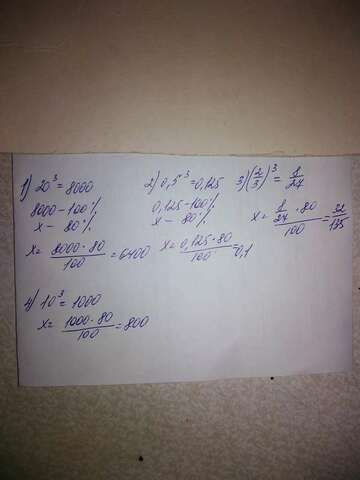 1) 20³ = 8000
8000 - 100%
x - 80%
x = 8000 · 80 / 100 = 6400
2) 0,5³ = 0,125
0,125 - 100%
x - 80%
x = 0,125 · 80 / 100 = 0,1
3) (2/3)³ = 8/27
x = 8/27 · 80 / 100 = 32/135
4) 10³ = 1000
x = 1000 · 80 / 100 = 800